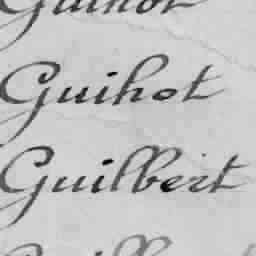 Guihot
Guilbert